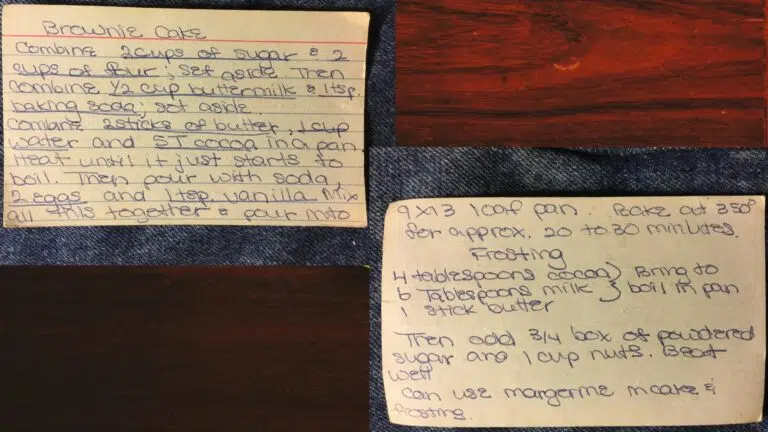 Brownie Cake
Combine 2 cups of sugar & 2
cups of flour; set aside. Then
combine 1/2 cup buttermilk & 1 tsp.
baking soda; set aside.
Combine 2 sticks of butter, 1 cup
water and 5T cocoa in a pan.
Heat until it just starts to
boil. Then pour with soda,
2 eggs and 1 tsp. vanilla. Mix
all this together & pour into
9x13 loaf pan. Bake at 350°
for approx. 20 to 30 minutes.
Frosting
4 tablespoons cocoa } Bring to
6 Tablespoons milk } boil in pan
1 stick butter
Then add 3/4 box of powdered
sugar and 1 cup nuts. Beat
well
Can use margerine in cake &
frosting.